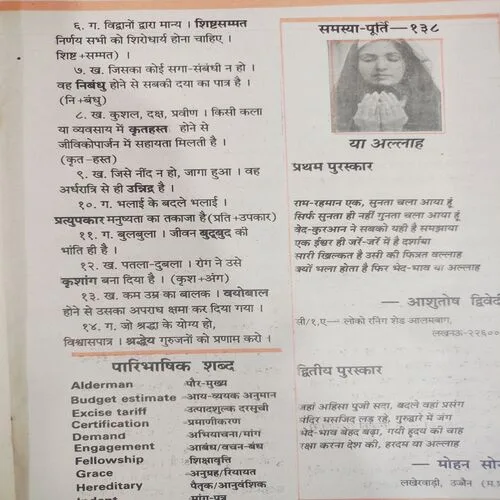 ६. ग. विद्वानों द्वारा मान्य । शिष्टसम्मत
निर्णय सभी को शिरोधार्य होना चाहिए ।
शिष्ट+सम्मत) ।
७. ख. जिसका कोई सगा-संबंधी न हो ।
वह निबंधु होने से सबकी दया का पात्र है ।
(नि+बंधु)
८. ख. कुशल, दक्ष, प्रवीण । किसी कला
या व्यवसाय में कृतहस्त होने से
जीविकोपार्जन में सहायता मिलती है ।
(कृत-हस्त)
९. ख. जिसे नींद न हो, जागा हुआ । वह
अर्धरात्रि से ही उन्निद्र है ।
१०. ग. भलाई के बदले भलाई ।
प्रत्युपकार मनुष्यता का तकाजा है(प्रति+उपकार)
११. ग. बुलबुला । जीवन बुद्बुद की
भांति ही है ।
१२. ख. पतला-दुबला । रोग ने उसे
कृशांग बना दिया है । (कृश+अंग)
१३. ख. कम उम्र का बालक । वयोबाल
होने से उसका अपराध क्षमा कर दिया गया ।
१४. ग. जो श्रद्धा के योग्य हो,
विश्वासपात्र । श्रद्धेय गुरुजनों को प्रणाम करो ।
पारिभाषिक शब्द
Alderman -पौर-मुख्य
Budget estimate -आय-व्ययक अनुमान
Excise tariff -उत्पादशुल्क दरसूची
Certification -प्रमाणीकरण
Demand -अभियाचना/मांग
Engagement -आबंध/वचन-बंध
Fellowship -शिक्षावृत्ति
Grace -अनुग्रह/रियायत
Hereditary -पैतृक/आनुवंशिक
Indent -मांग-पत्र
समस्या-पूर्ति—१३८
या अल्लाह
प्रथम पुरस्कार
राम-रहमान एक, सुनता चला आया हूं
सिर्फ सुनता ही नहीं गुनता चला आया हूं
वेद-कुरआन ने सबको यही है समझाया
एक ईश्वर ही जर्रे-जर्रे में है दर्शाया
सारी खिल्कत है उसी की फितरत वल्लाह
क्यों भला होता है फिर भेद-भाव या अल्लाह
— आशुतोष द्विवेदी
सी/१,ए— लोको रनिंग शेड आलमबाग,
लखनऊ-२२६००
द्वितीय पुरस्कार
जहां अहिंसा पुजी सदा, बदले वहां प्रसंग
मंदिर मसजिद लड़ रहे, गुरुद्वारे में जंग
भेद-भाव बेहद बढ़ा, गयी हृदय की थाह
रक्षा करना देश की, हरदम या अल्लाह
— मोहन सोन
लखेरवाड़ी, उज्जैन (म.प्र.